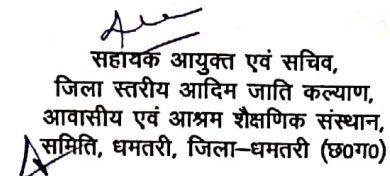 सहायक आयुक्त एवं सचिव,
जिला स्तरीय आदिम जाति कल्याण,
आवासीय एवं आश्रम शैक्षणिक संस्थान,
समिति, धमतरी, जिला–धमतरी (छ0ग0)